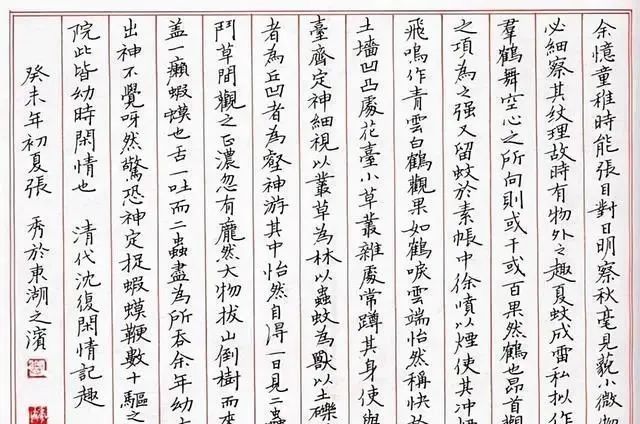 余憶童稚時能張目對日明察秋毫見藐小微物
必細察其紋理故時有物外之趣夏蚊成雷私拟作
羣鶴舞空心之所向則或千或百果然鶴也昂首觀
之項為之强又留蚊於素帳中徐噴以煙使其冲煙
飛鳴作青雲白鶴觀果如鶴唳雲端怡然稱快於
土墻凹凸處花臺小草叢雜處常蹲其身使與
臺齊定神細視以叢草為林以蟲蚊為獸以土礫
者為丘凹者為壑神游其中怡然自得一日見二蟲
鬥草間觀之正濃忽有龐然大物拔山倒樹而來
盖一癩蝦蟆也舌一吐而二蟲盡為所吞余年幼
出神不覺呀然驚恐神定捉蝦蟆鞭數十驅之
院此皆幼時閑情也 清代沈復閑情記趣
癸未年初夏張 秀於東湖之濱